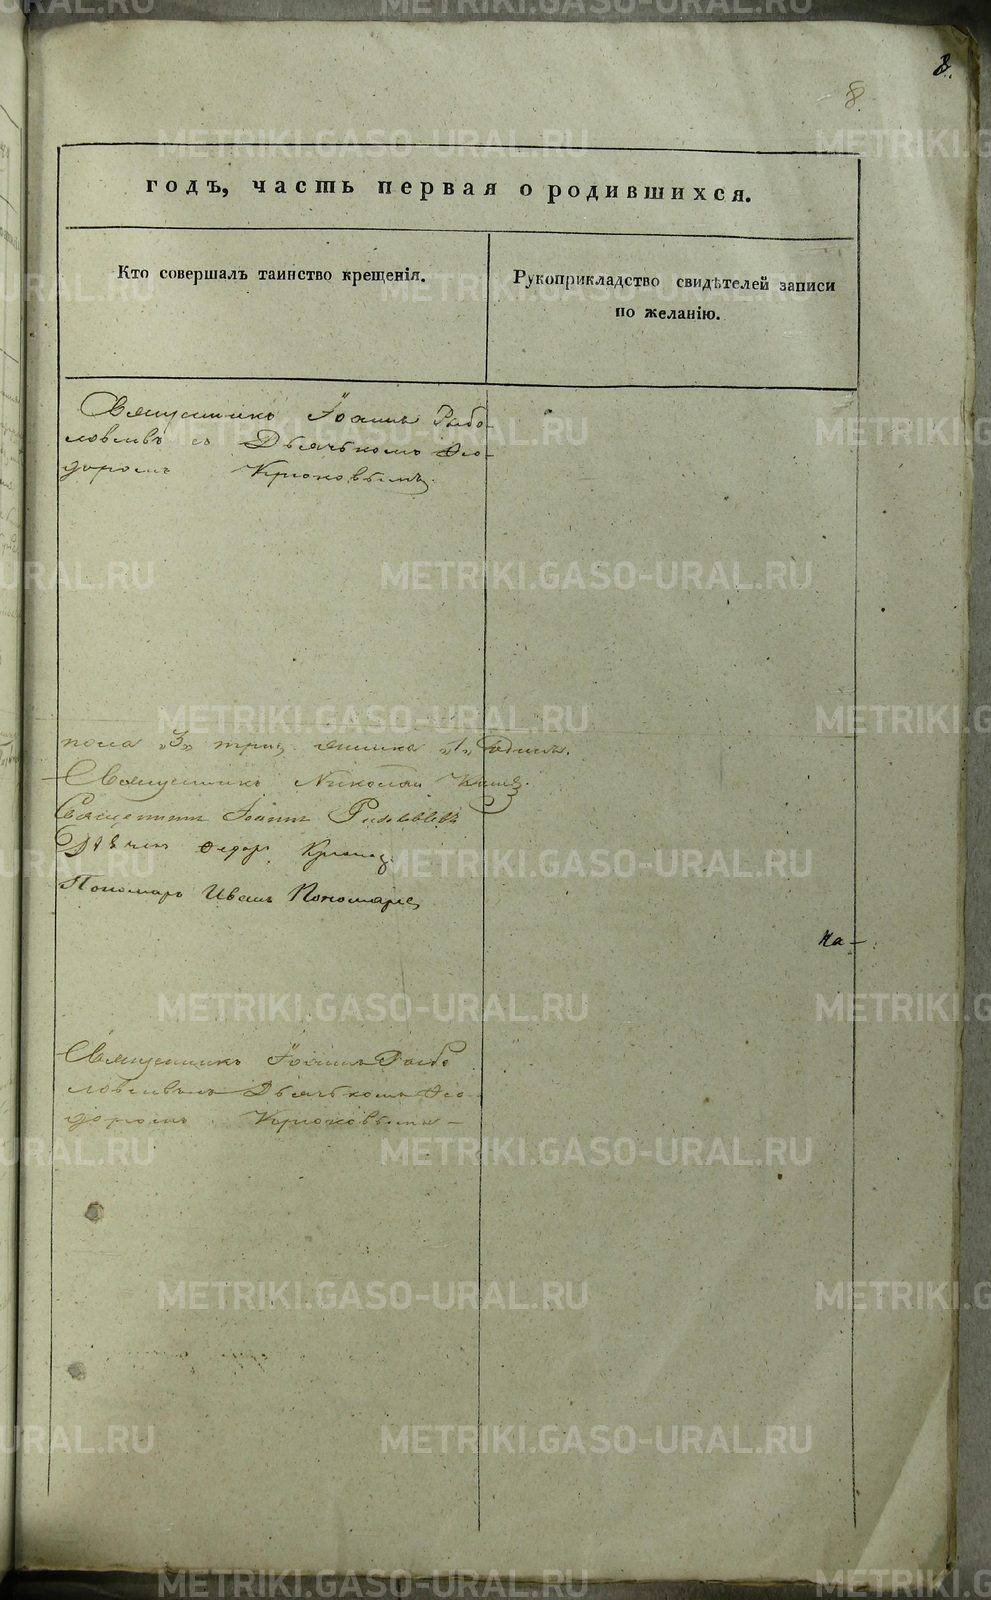 8.
8.
годъ, часть первая о родившихся.
Кто совершалъ таинство крещенія.
Рукоприкладство свидѣтелей записи
по желанію.
Священникъ Іоаннъ Рыбо-
ловлевъ съ Дьячькомъ Ѳео-
доромъ Крюковымъ.
пола „3„ три женска „1„ Одинъ.
Священникъ Николай
Священникъ Іоаннъ Рыболовлевъ
Дьячек Ѳедоръ Крюков
Пономарь Иванъ Пономарев
На-
Священникъ Іоаннъ Рыбо
ловлевъ съ Дьячькомъ Ѳео-
доромъ Крюковымъ-
METRIKI.GASO-URAL.RU